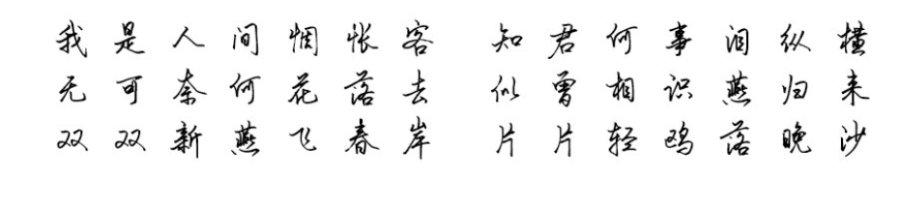 我是人间惆怅客 知君何事泪纵横
无可奈何花落去 似曾相识燕归来
双双新燕飞春岸 片片轻鸥落晚沙